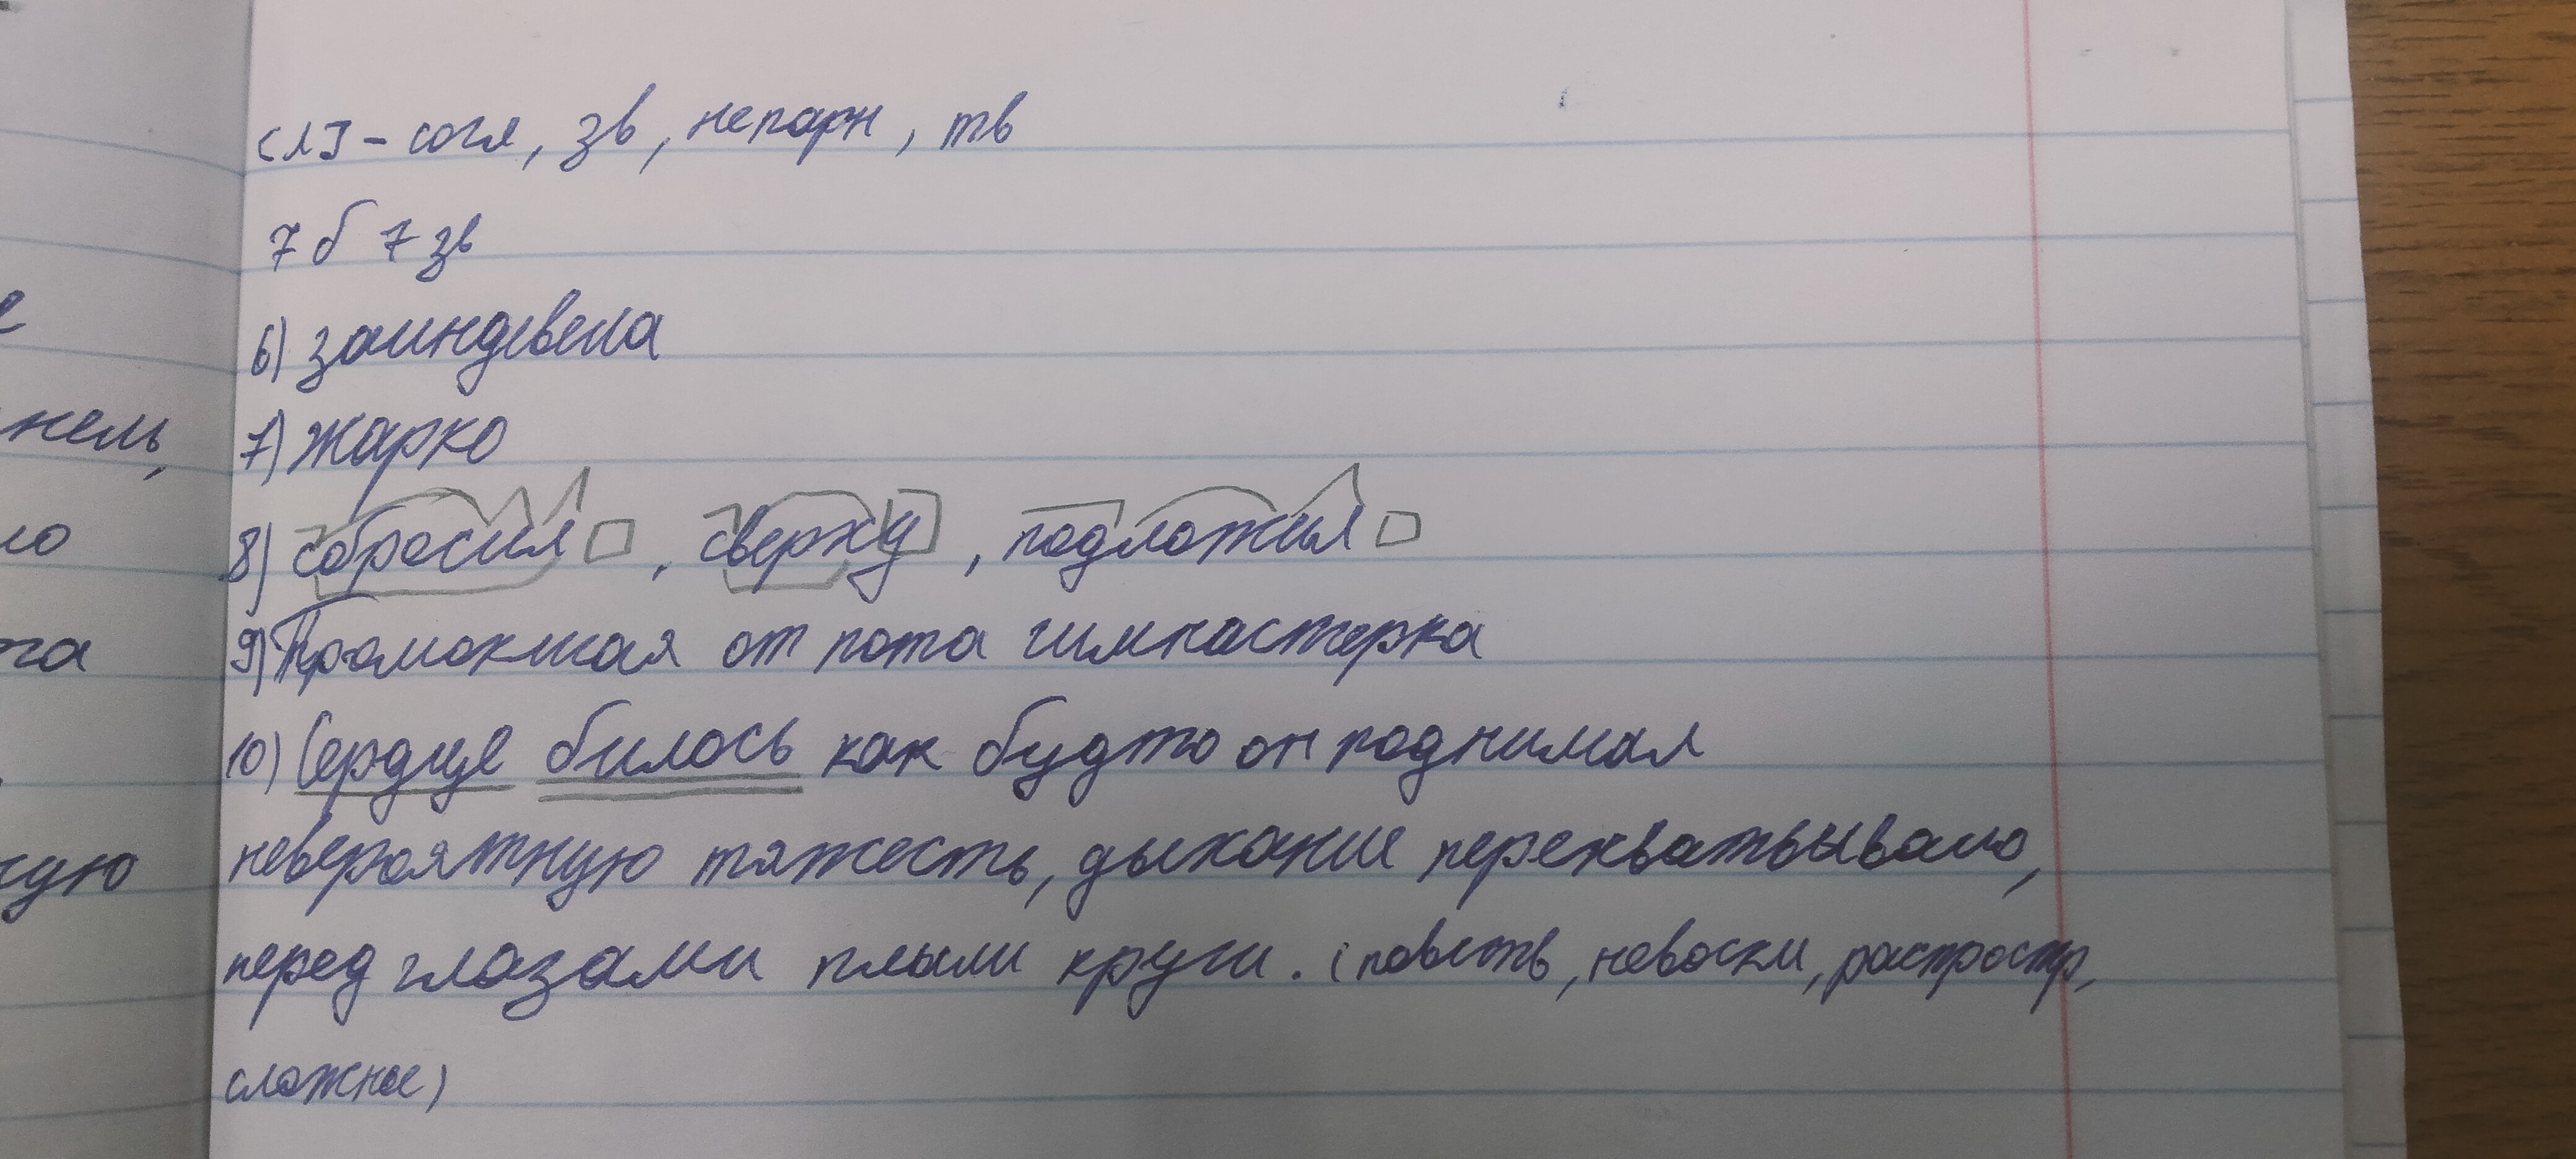 [л] - согл, зв, непарн, тв
7 б 7 зв
6) заиндевела
7) жарко
8) сбросил , сверху , подложил
9) Промокшая от пота гимнастерка
10) Сердце билось как будто он поднимал
невероятную тяжесть, дыхание перехватывало,
перед глазами плыли круги. (повеств, невоскл, распростр,
сложное)
нель,
ло
та
ную